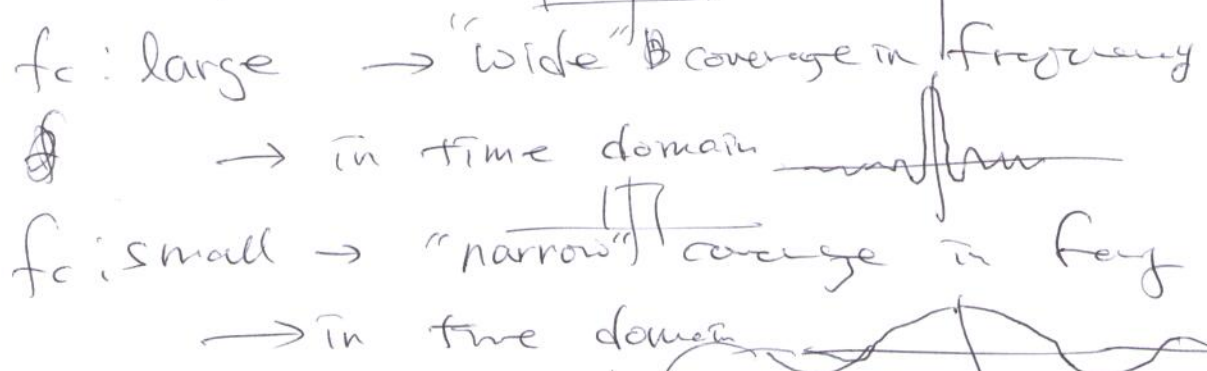 fc : large → "wide" coverage in frequency
→ in time domain
fc : small → "narrow" coverage in freq
→ in time domain